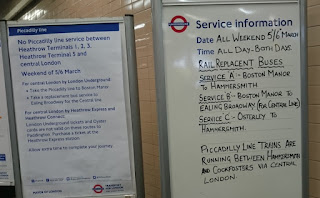 Piccadilly line
No Piccadilly line service between
Heathrow Terminals 1, 2, 3,
Heathrow Terminal 5 and
central London
Weekend of 5/6 March
For central London by London Underground
Take the Piccadilly line to Boston Manor
Take a replacement bus service to
Ealing Broadway for the Central line
For central London by Heathrow Express and
Heathrow Connect
London Underground tickets and Oyster
cards are not valid on these routes to
Paddington. Purchase a ticket at the
Heathrow Express station
Allow extra time to complete your journey.
MAYOR OF LONDON
Service information
DATE ALL WEEKEND 5/6 MARCH
TIME ALL DAY - BOTH DAYS.
RAIL REPLACENT BUSES
SERVICE A - BOSTON MANOR
TO HAMMERSMITH
SERVICE B - BOSTON MANOR TO
EALING BROADWAY (FOR CENTRAL LINE)
SERVICE C - OSTERLEY TO
HAMMERSMITH.
PICCADILLY LINE TRAINS ARE
RUNNING BETWEEN HAMMERSMITH
AND COCKFOSTERS VIA CENTRAL
LONDON.